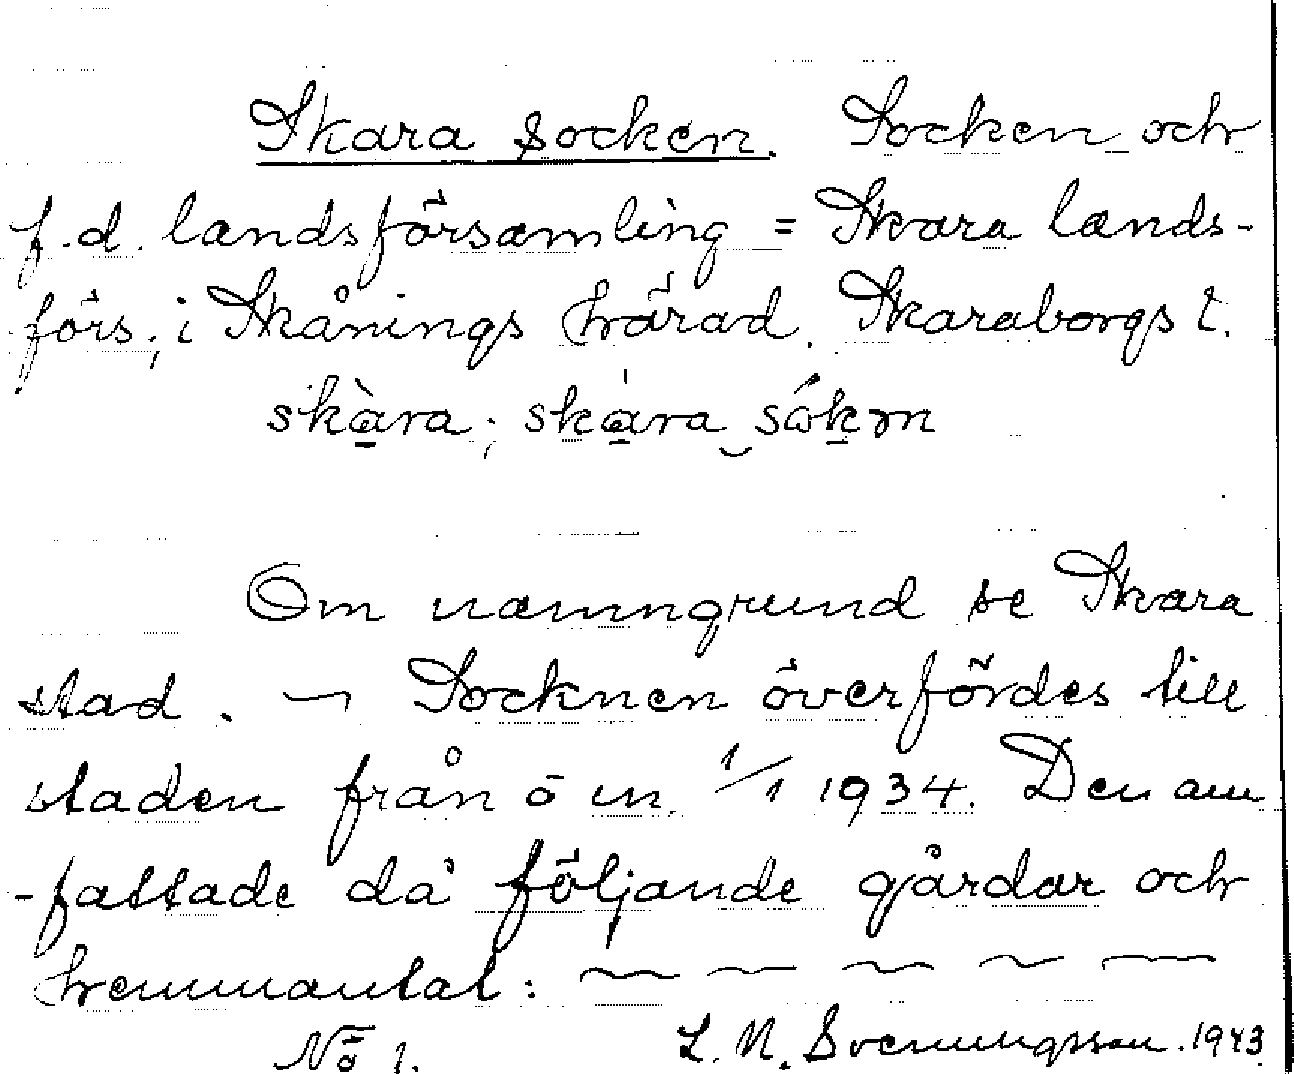 Skara socken. Socken och
f.d. landsförsamling = Skara lands-
förs. i Skånings härad. Skaraborgs l.
skàra; skára sókən
Om namngrund se Skara
stad. — Socknen överfördes till
staden från o m 1/1 1934. Den om
-fattade då följande gårdar och
hemmantal: — — — — —
No 1. L. N. Svenungsson. 1943